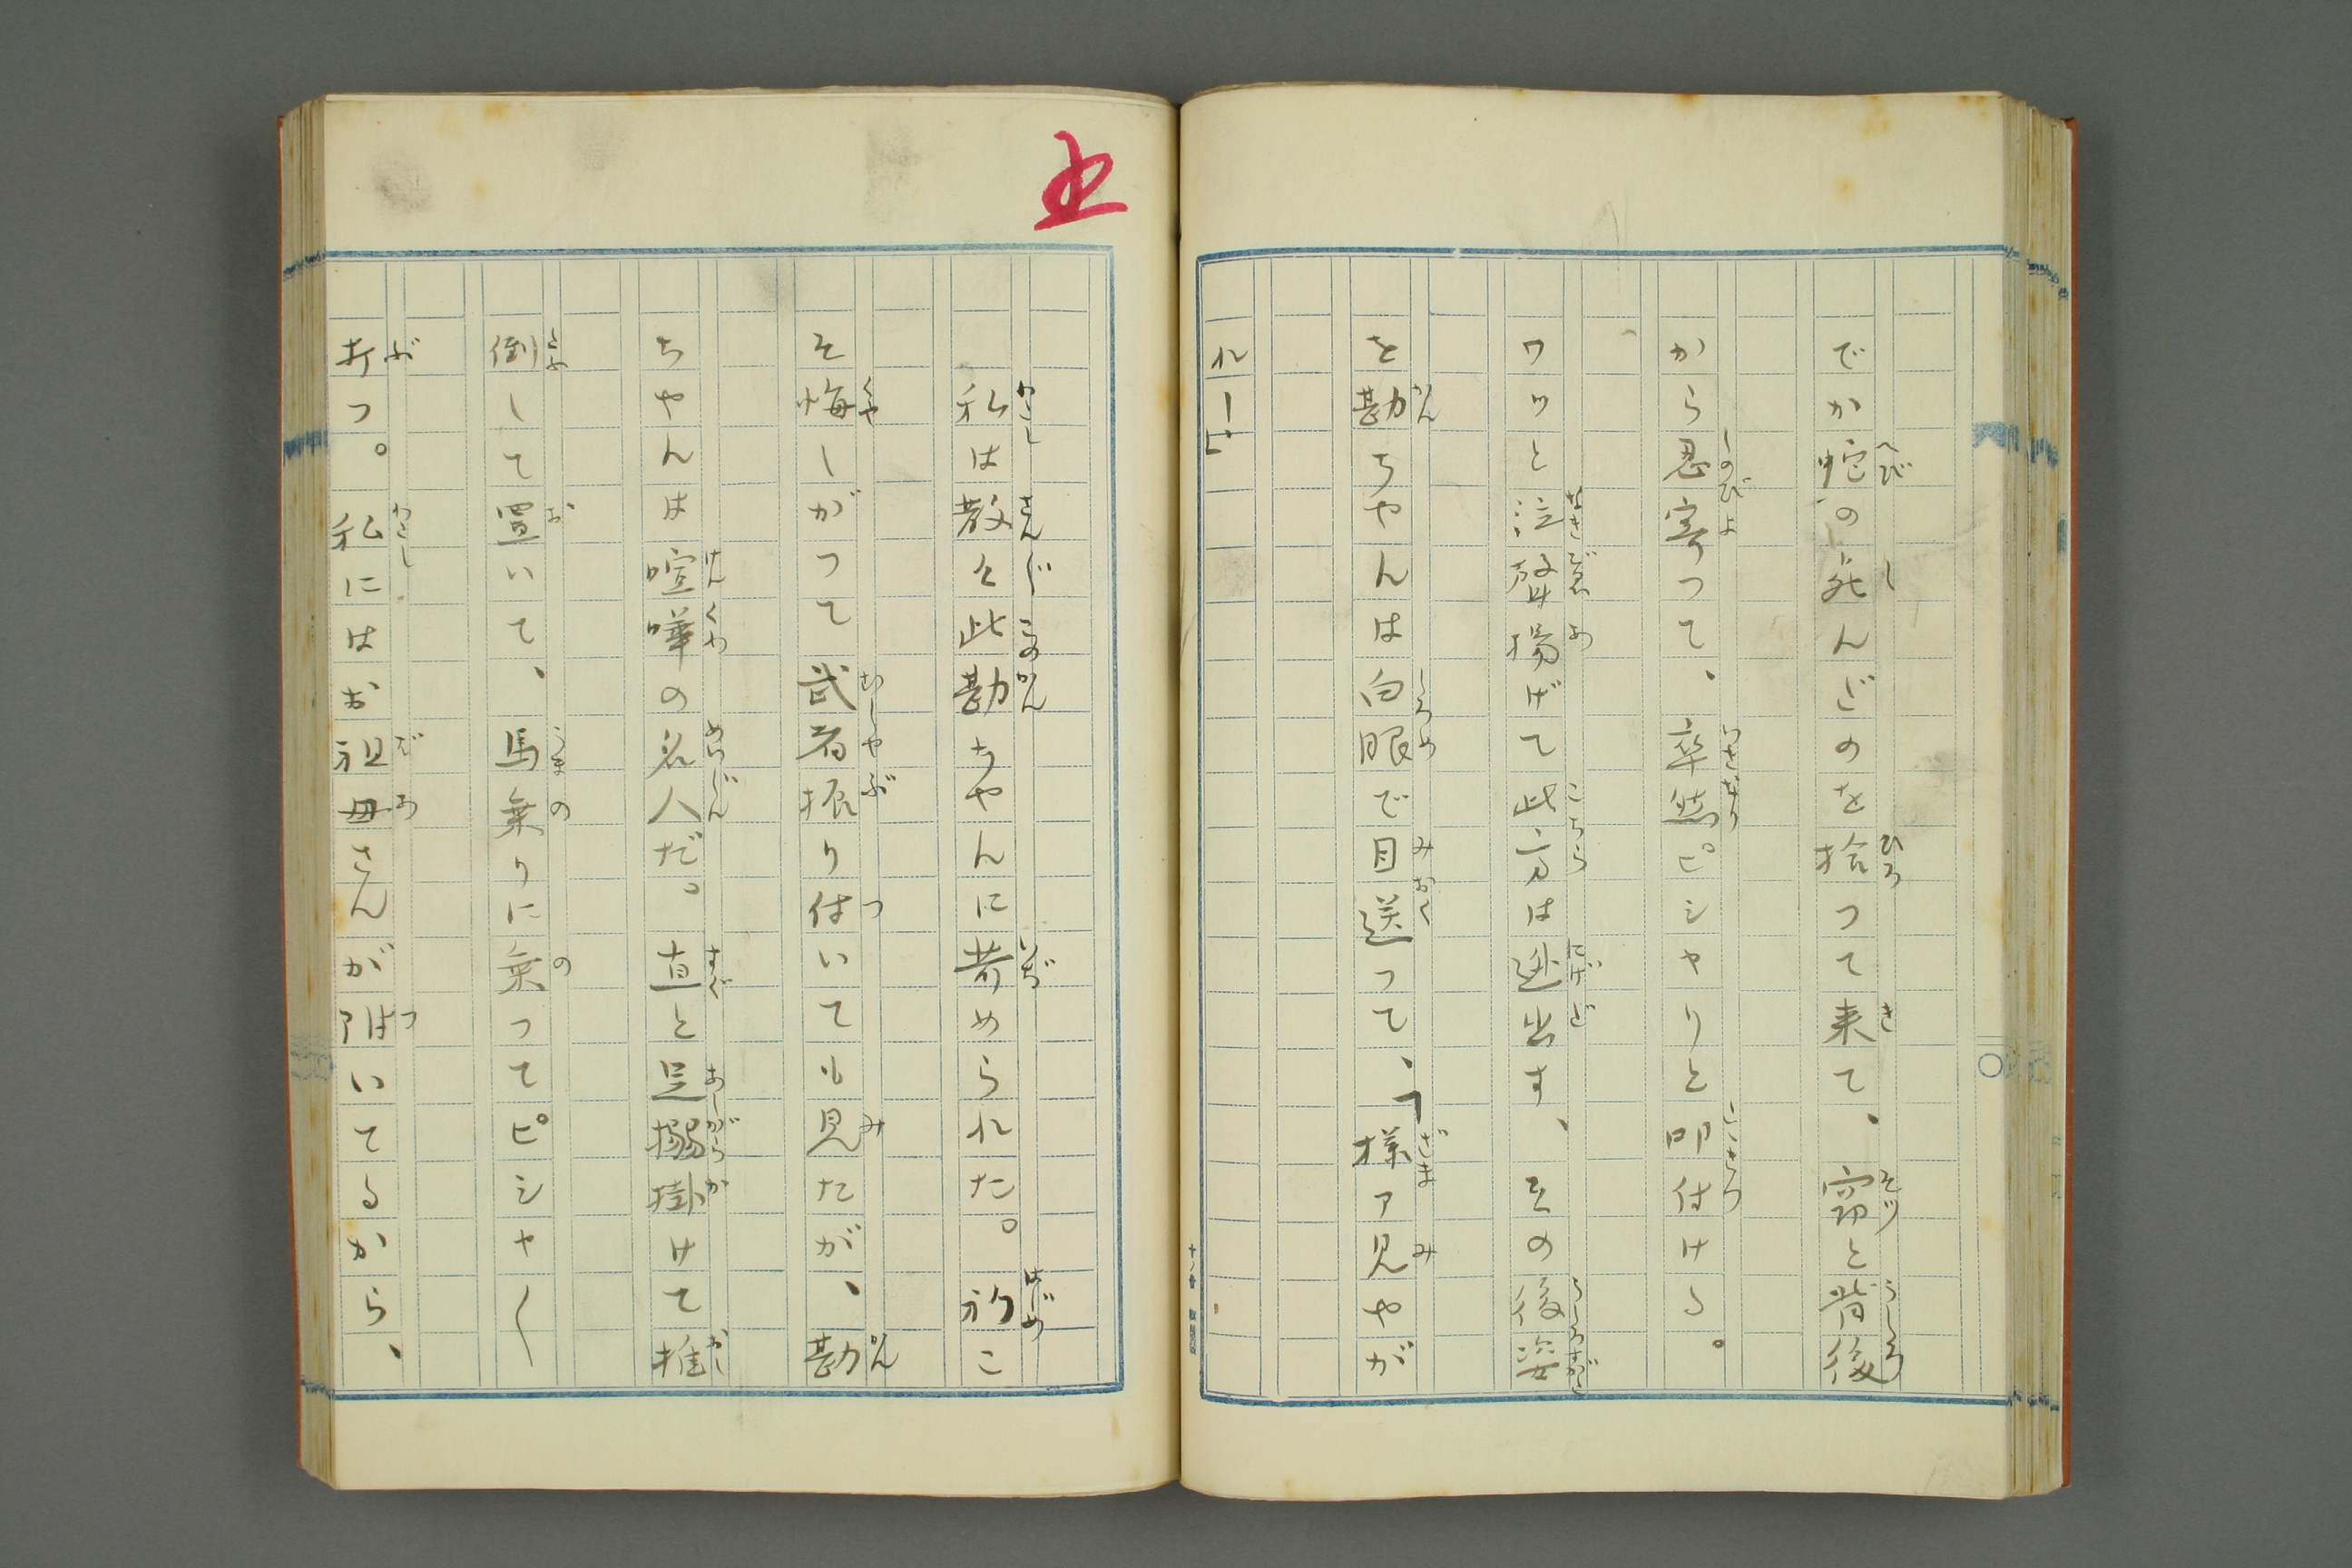 でか蛇の死んだのを拾つて来て、窃と背後
から忍寄つて、卒然ピシヤリと叩付ける。
ワツと泣聲揚げて此方は逃出す、其の後姿
を勘ちやんは白眼で目送つて、「様ア見やが
れー」
私は散々此勘ちやんに苛められた。初こ
そ悔しがつて武者振り付いても見たが、勘
ちやんは喧嘩の名人だ。直と足搦掛けて推
倒して置いて、馬乗りに乗つてピシヤ〳〵
打つ。私にはお祖母さんが附いてるから、